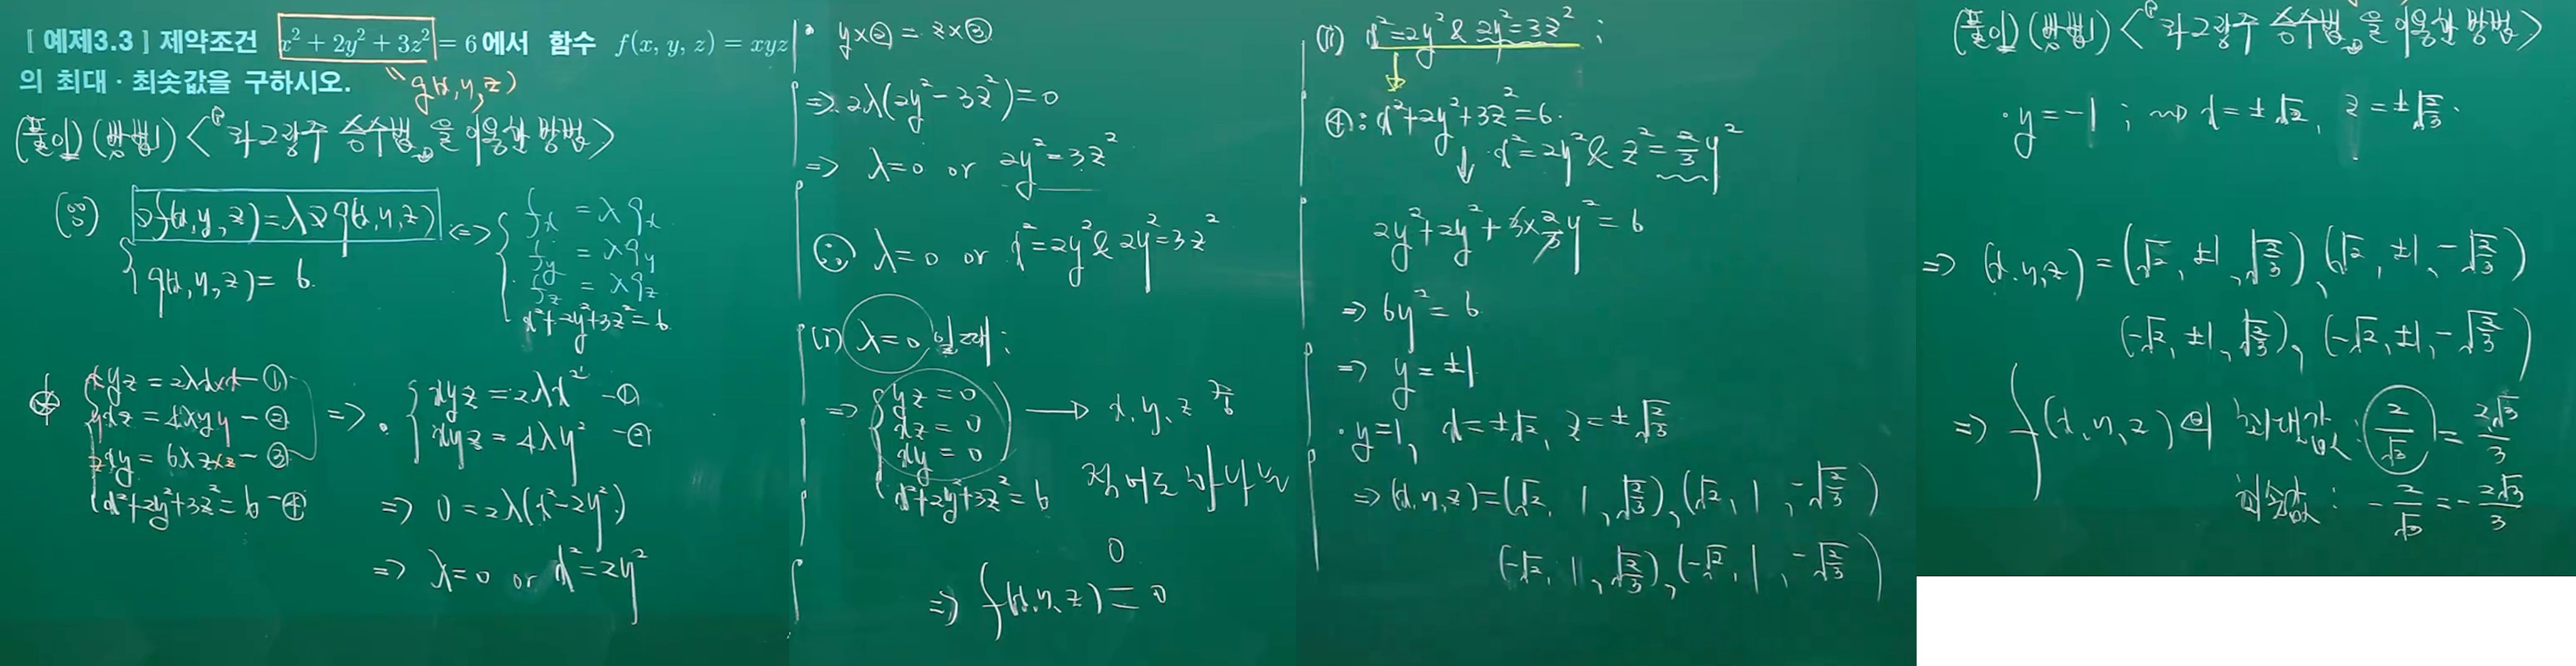 [ 예제3.3 ] 제약조건 x² + 2y² + 3z² = 6 에서 함수 f(x, y, z) = xyz
의 최대 · 최솟값을 구하시오.
g(x, y, z)
(풀이) (방법1) < 『라그랑주 승수법』을 이용한 방법 >
(∵) ∇f(x, y, z) = λ∇g(x, y, z)
g(x, y, z) = 6.
⇔
f_x = λg_x
f_y = λg_y
f_z = λg_z
x²+2y²+3z² = 6.
xyz = 2λx×x - ①
yxz = 4λy×y - ②
zxy = 6λz×z - ③
x²+2y²+3z² = 6 - ④
⇒ · xyz = 2λx² - ①
xyz = 4λy² - ②
⇒ 0 = 2λ(x²-2y²)
⇒ λ=0 or x²=2y²
· y×② = z×③
⇒ 2λ(2y²-3z²)=0
⇒ λ=0 or 2y²=3z²
∴ λ=0 or x²=2y² & 2y²=3z²
(i) λ=0 일 때 ;
⇒ yz = 0
xz = 0
xy = 0
x²+2y²+3z² = 6
→ x, y, z 중
적어도 하나는
0
⇒ f(x, y, z) = 0
(ii) x²=2y² & 2y²=3z² ;
④ : x²+2y²+3z²=6.
↓ x²=2y² & z²=2/3 y²
2y²+2y²+3×2/3 y² = 6
⇒ 6y² = 6
⇒ y = ±1
· y=1, x=±√2, z=±√(2/3)
⇒ (x, y, z)=(√2, 1, √(2/3)), (√2, 1, -√(2/3))
(-√2, 1, √(2/3)), (-√2, 1, -√(2/3))
(풀이) (방법1) < 『라그랑주 승수법』을 이용한 방법 >
· y=-1 ; ⇝ x=±√2, z=±√(2/3).
⇒ (x, y, z) = (√2, ±1, √(2/3)), (√2, ±1, -√(2/3))
(-√2, ±1, √(2/3)), (-√2, ±1, -√(2/3))
⇒ f(x, y, z)의 최대값 : 2/√3 = 2√3/3
최솟값 : -2/√3 = -2√3/3